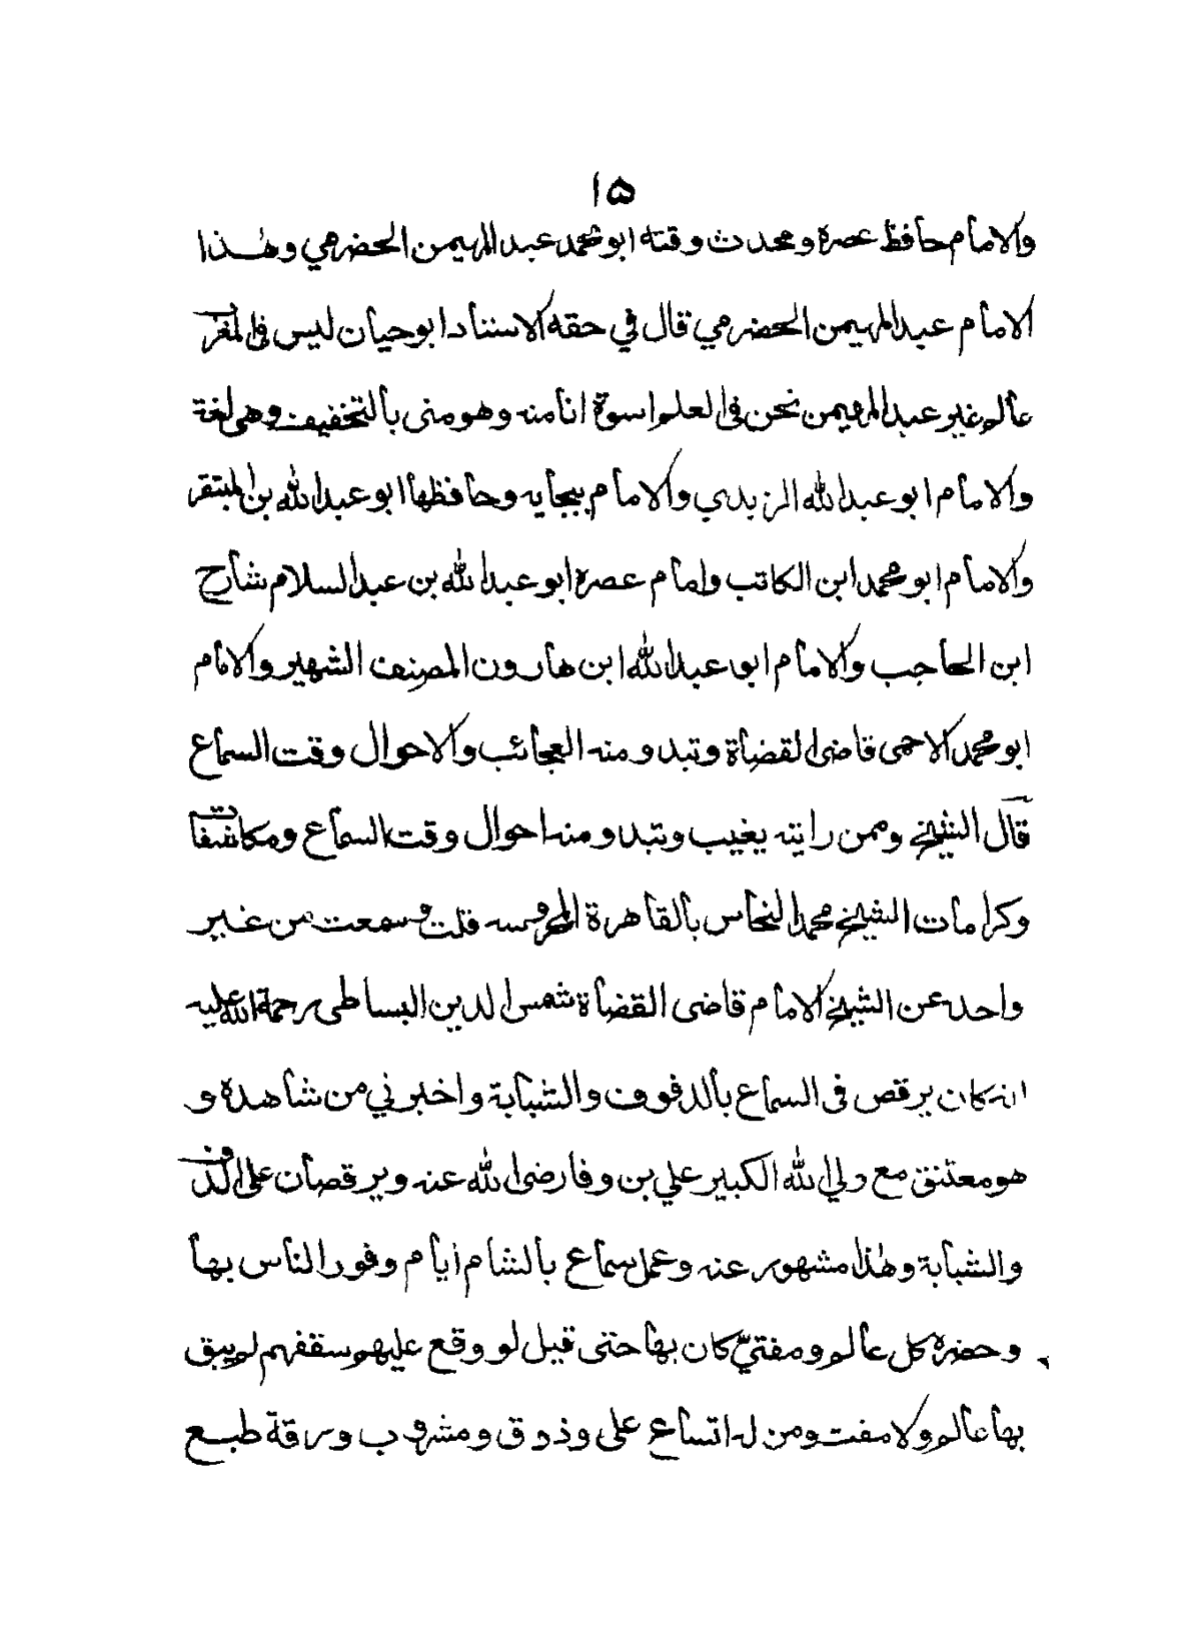 ١٥
والامام حافظ عصره ومحدث وقته ابو محمد عبد المهيمن الحضرمي وهذا
الامام عبد المهيمن الحضرمي قال في حقه الاستاد ابو حيان ليس فى المغرب
عالم غير عبد المهيمن نحن فى العلم اسوة انا منه وهو منى بالتخفيف وهى لغة
والامام ابو عبد الله الزبدي والامام ببجايه وحافظها ابو عبد الله بن
والامام ابو محمد ابن الكاتب وامام عصره ابو عبد الله بن عبد السلام شارح
ابن الحاجب والامام ابو عبد الله ابن هارون المصنف الشهير والامام
ابو محمد الاجمى قاضى القضاة وتبدو منه العجائب والاحوال وقت السماع
قال الشيخ وممن رايته يغيب وتبدو منه احوال وقت السماع ومكاشفات
وكرامات الشيخ محمد النحاس بالقاهرة المحروسه قلت وسمعت من غير
واحد عن الشيخ الامام قاضى القضاة شمس الدين البساطى رحمة الله عليه
انه كان يرقص فى السماع بالدفوف والشبابة واخبرني من شاهده و
هو معتنق مع ولي الله الكبير علي بن وفا رضى الله عنه ويرقصان على الدفوف
والشبابة وهذا مشهور عنه وعمل سماع بالشام ايام وفور الناس بها
وحضره كل عالم ومفتيّ كان بها حتى قيل لو وقع عليهم سقفهم لم يبق
بها عالم ولا مفت ومن له اتساع على وذوق ومشروب ورقة طبع